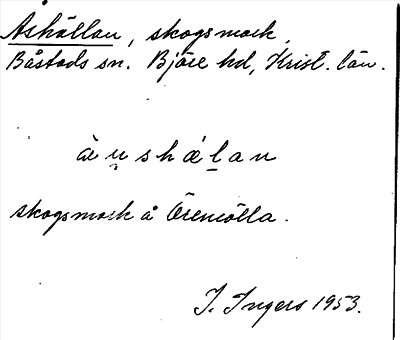 Åshällan, skogsmark,
Båstads sn. Bjäre hd, Krist. län.
skogsmark å Örenmölla.
I. Ingers 1953.